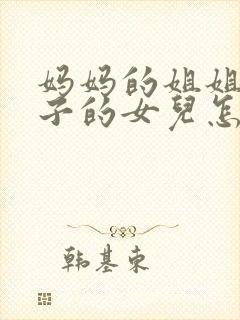 妈妈的姐姐
子的女兒怎
韩基东